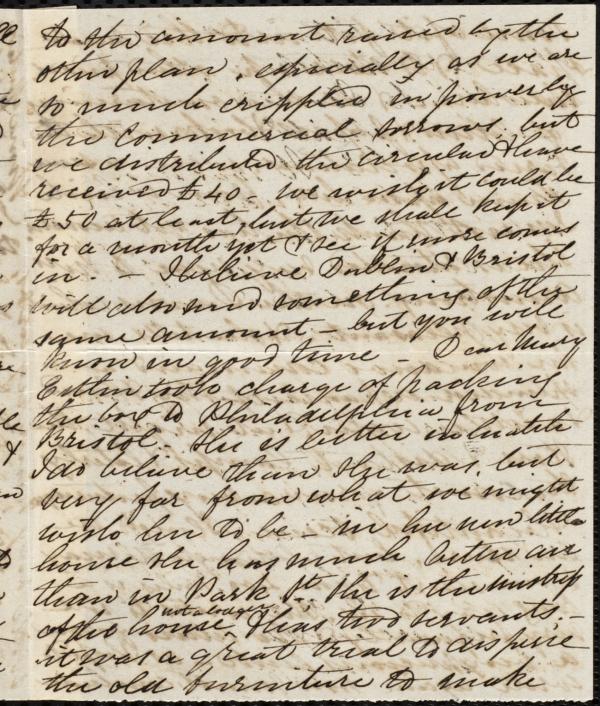 to the amount raised by the
other plan, especially as we are
so much crippled in power by
the commercial sorrows, but
we distributed the circular & have
received £40 - we wish it could be
£50 at least, but we shall keep it
for a month yet & see if more comes
in. - I believe Dublin & Bristol
will also send something of the
same amount - but you will
know in good time - Dear Mary
Estlin took charge of packing
the box to Philadelphia from
Bristol. She is better in health
I do believe than she was, but
very far from what we might
wish her to be - in her new little
house she has much better air
than in Park St. She is the mistress
of the house not a lodger & has two servants. -
it was a great trial to disperse
the old furniture to make